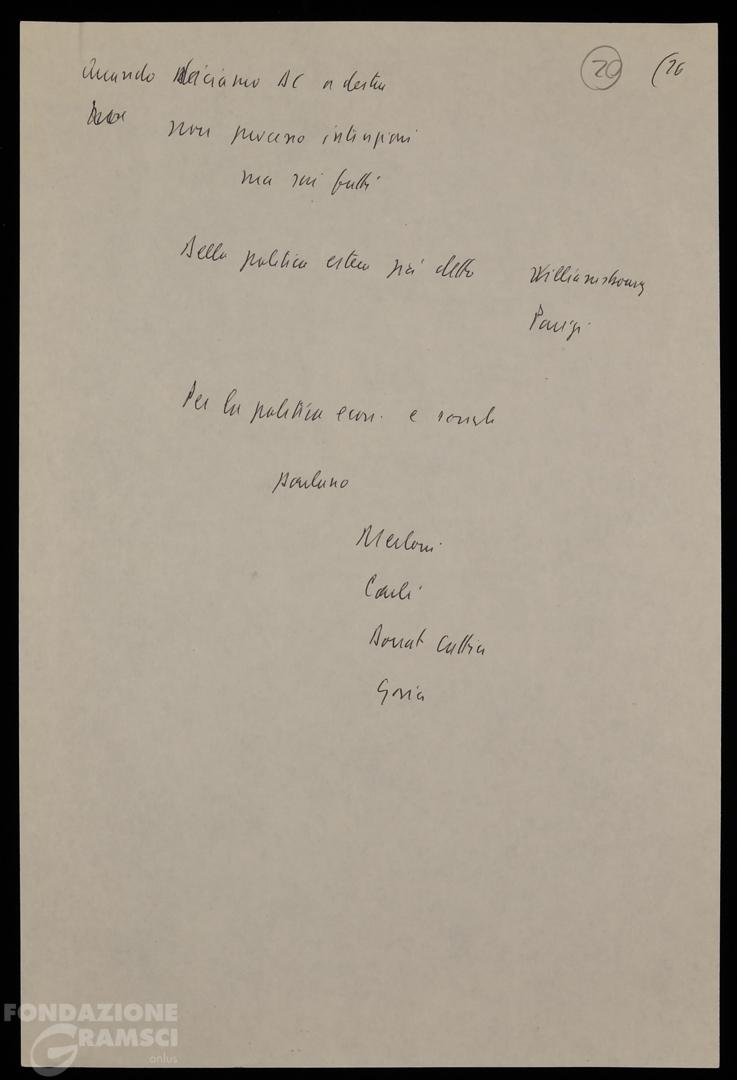 Quando diciamo DC a destra
20
(26
non processo intenzioni
ma sui fatti
Della politica estera già detto Williamsbourg
Parigi
Per la politica econ. e sociale
parlano
Merloni
Carli
Donat Cattin
Goria
FONDAZIONE
GRAMSCI
onlus